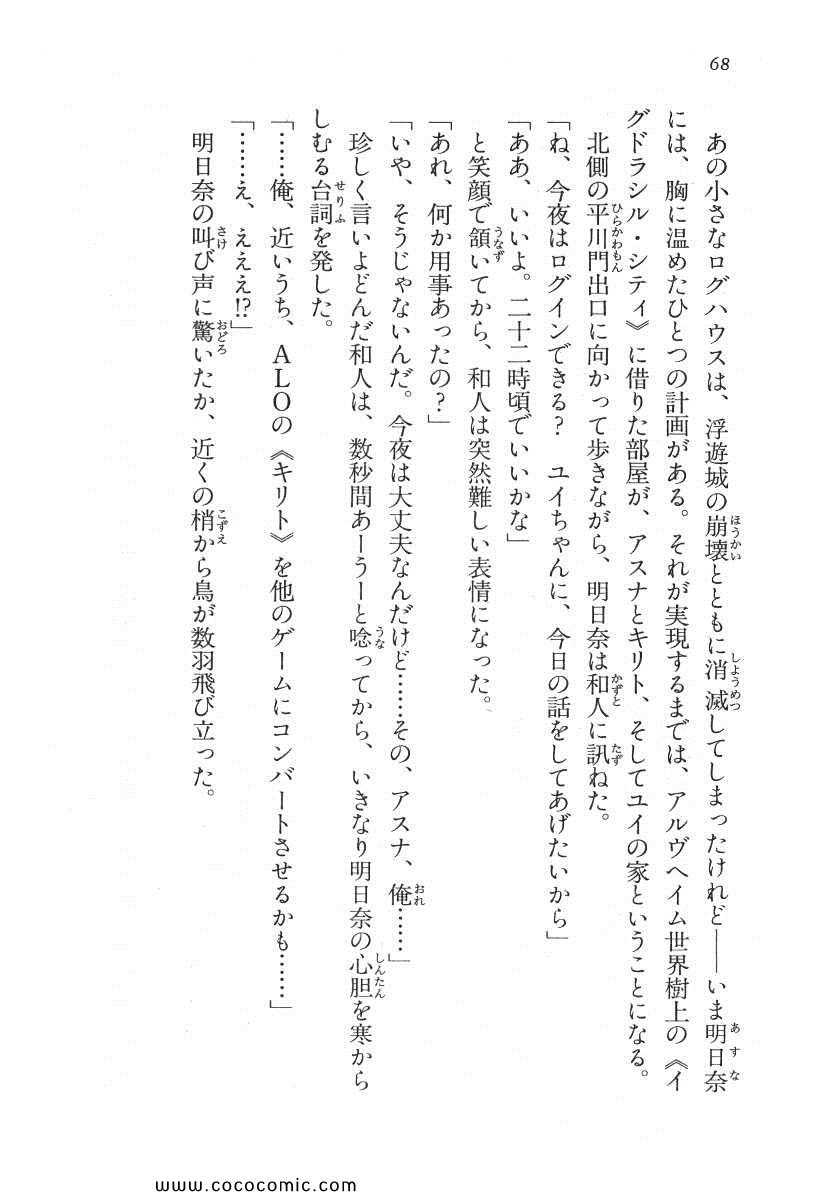 68
あの小さなログハウスは、浮遊城の崩壊とともに消滅してしまったけれど――いま明日奈
には、胸に温めたひとつの計画がある。それが実現するまでは、アルヴヘイム世界樹上の《イ
グドラシル・シティ》に借りた部屋が、アスナとキリト、そしてユイの家ということになる。
北側の平川門出口に向かって歩きながら、明日奈は和人に訊ねた。
「ね、今夜はログインできる？　ユイちゃんに、今日の話をしてあげたいから」
「ああ、いいよ。二十二時頃でいいかな」
と笑顔で頷いてから、和人は突然難しい表情になった。
「あれ、何か用事あったの？」
「いや、そうじゃないんだ。今夜は大丈夫なんだけど……その、アスナ、俺……」
珍しく言いよどんだ和人は、数秒間あーうーと唸ってから、いきなり明日奈の心胆を寒から
しむる台詞を発した。
「……俺、近いうち、ＡＬＯの《キリト》を他のゲームにコンバートさせるかも……」
「……え、えええ!?」
明日奈の叫び声に驚いたか、近くの梢から鳥が数羽飛び立った。
www.cococomic.com